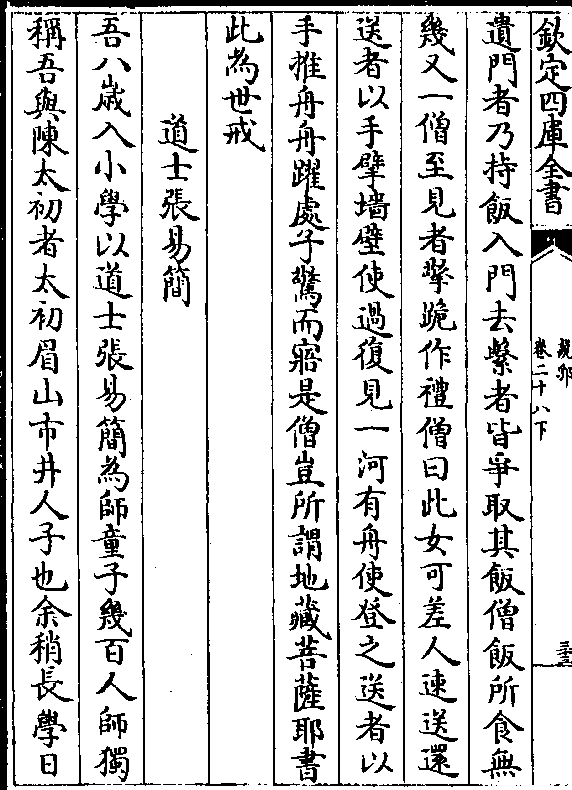 欽定四庫全書
說郛
卷二十八下
遺門者乃持飯入門去繫者皆爭取其飯僧飯所食無
幾又一僧至見者擎跪作禮僧曰此女可差人速送還
送者以手擘墻壁使過復見一河有舟使登之送者以
手推舟舟躍處子驚而寤是僧豈所謂地藏菩薩耶書
此為世戒
道士張易簡
吾八歲入小學以道士張易簡為師童子幾百人師獨
稱吾與陳太初者太初眉山市井人子也余稍長學日